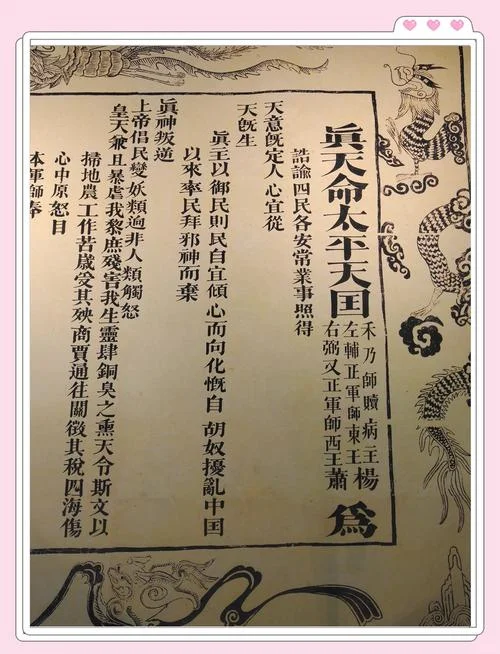 眞天命太平天囯
禾乃師贖病主
左輔正軍師東王楊
右弼又正軍師西王蕭
爲
誥諭四民各安常業事照得
天意旣定人心宜從
天旣生
眞主以御民則民自宜傾心而向化慨自 胡奴擾亂中囯
以來率民拜邪神而棄
眞神叛逆
上帝倡民變妖類迥非人類觸怒
皇天兼且暴虐我黎庶殘害我生靈肆銅臭之熏天令斯文以
掃地農工作苦歲受其殃商賈通往關徵其稅四海傷
心中原怒目
本軍師奉